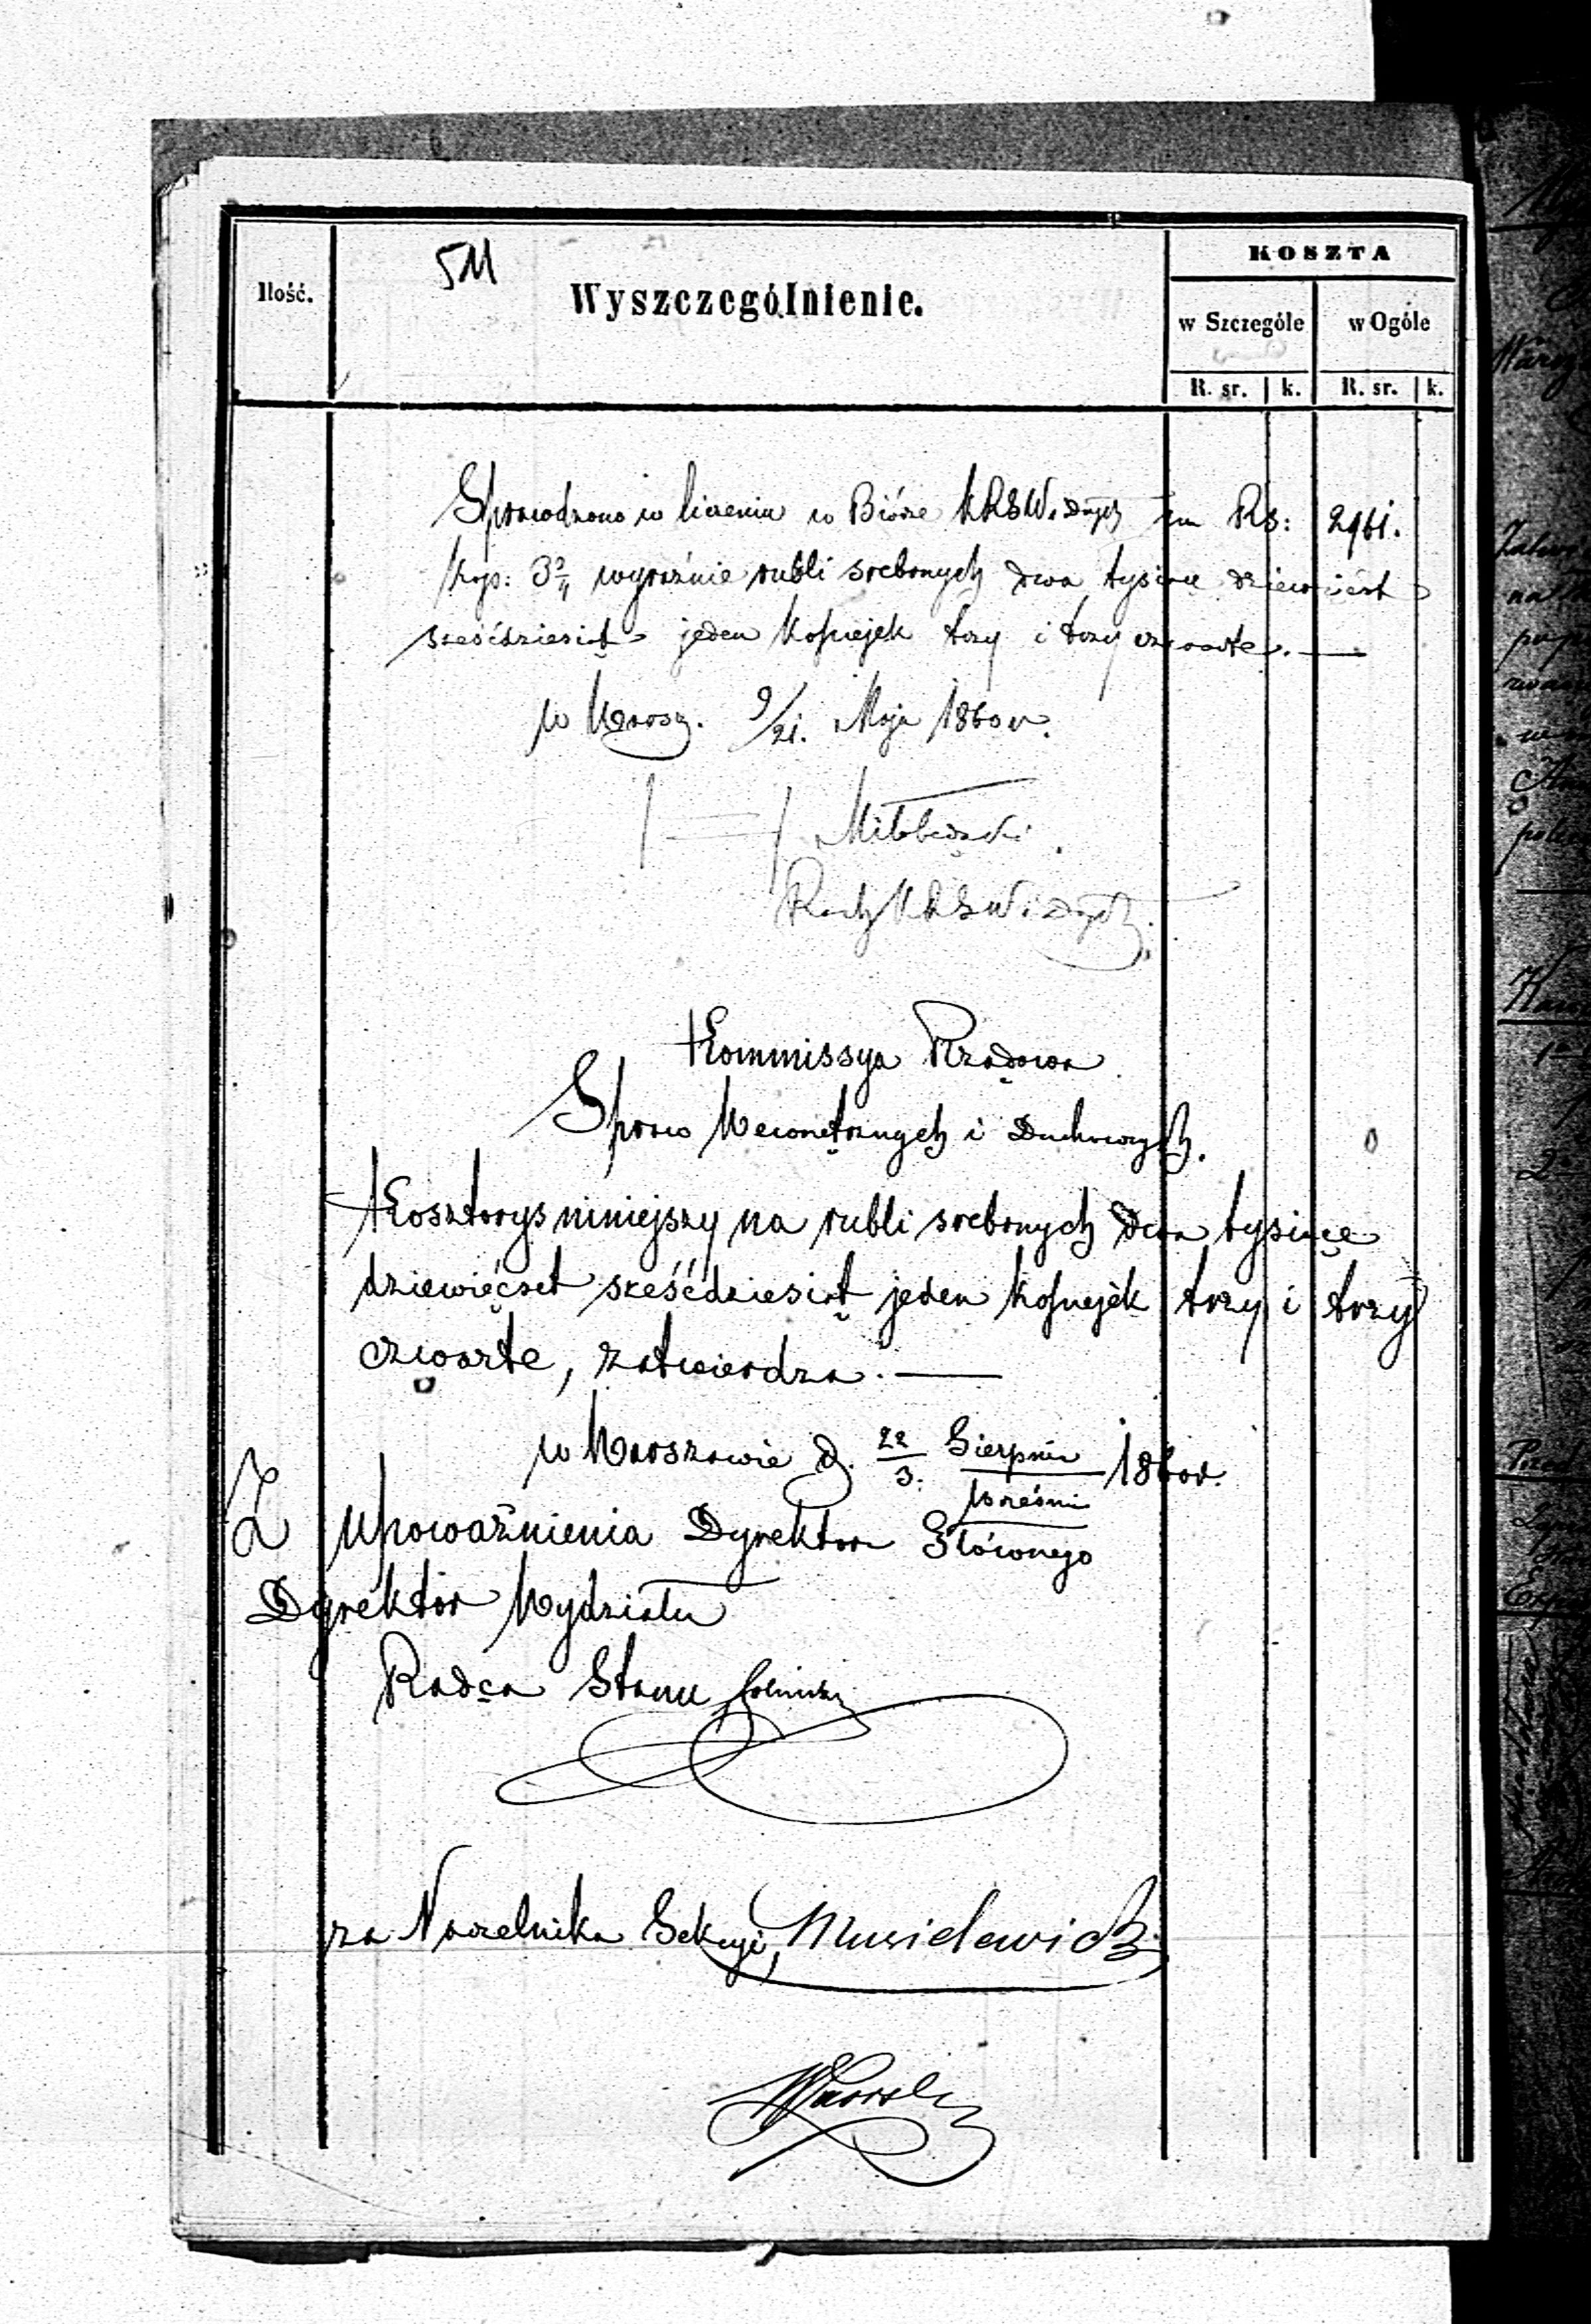 511
Ilość.
Wyszczególnienie.
KOSZTA
w Szczególe
w Ogóle
R. sr. k.
R. sr. k.
Sprawdzono w liczeniu w Biórze KRSW. i Duch na Rs: 2961.
Kop: 3¾ wyraźnie rubli srebrnych dwa tysiące dziewięćset
sześćdziesiąt jeden kopiejek trzy i trzy czwarte. —
w Warsz. 9/21. Maja 1860 r.
Miłobędzki.
KRSW i Duch
Kommissya Rządowa
Spraw Wewnętrznych i Duchownych.
Kosztorys niniejszy na rubli srebrnych dwa tysiące
dziewięćset sześćdziesiąt jeden kopiejek trzy i trzy
czwarte, zatwierdza. —
w Warszawie d. 22/3. Sierpnia/Wrześni 1860 r.
Z upoważnienia Dyrektora Głównego
Dyrektor Wydziału
Radca Stanu
za Naczelnika Sekcyi,